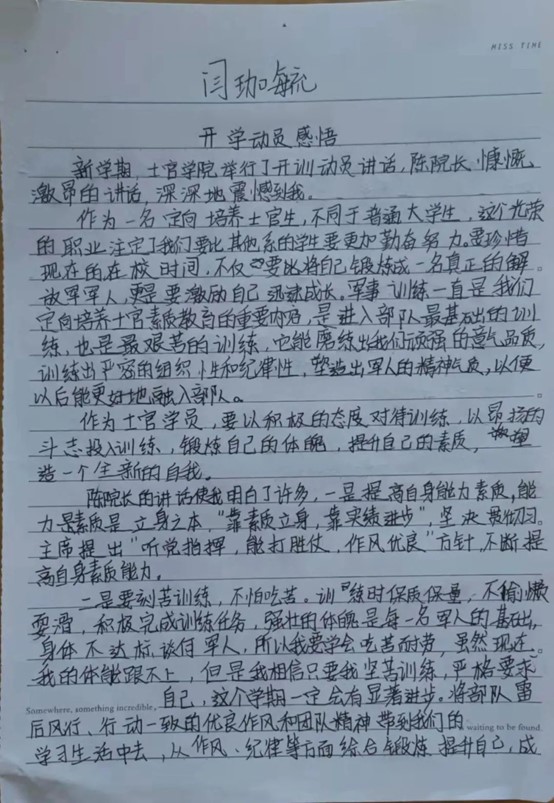 MISS TIME
闫珈毓
开学动员感悟
新学期，士官学院举行了开训动员讲话，陈院长慷慨
激昂的讲话，深深地震憾到我。
作为一名定向培养士官生，不同于普通大学生，这个光荣
的职业注定了我们要比其他系的学生要更加勤奋努力。要珍惜
现在的在校时间，不仅要比将自己锻炼成一名真正的解
放军军人，更是要激励自己迅速成长。军事训练一直是我们
定向培养士官素质教育的重要内容，是进入部队最基础的训
练，也是最艰苦的训练，它能磨练出我们顽强的意气品质，
训练出严密的组织性和纪律性，塑造出军人的精神气质，以便
以后能更好地融入部队。
作为士官学员，要以积极的态度对待训练，以昂扬的
斗志投入训练，锻炼自己的体魄，提升自己的素质，塑
造一个全新的自我。
陈院长的讲话使我明白了许多，一是提高自身能力素质，能
力素质是立身之本，“靠素质立身，靠实绩进步”，坚决贯彻习
主席提出“听党指挥，能打胜仗，作风优良”方针，不断提
高自身素质能力。
二是要刻苦训练，不怕吃苦。训练时保质保量，不偷懒
耍滑，积极完成训练任务，强壮的体魄是每一名军人的基础，
身体不达标谈何军人，所以我要学会吃苦耐劳，虽然现在
我的体能跟不上，但是我相信只要我坚苦训练，严格要求
Somewhere, something incredible, 自己，这个学期一定会有显著进步。将部队雷
后风行、行动一致的优良作风和团队精神带到我们的 waiting to be found.
学习生活中去，从作风、纪律等方面综合锻炼提升自己，成